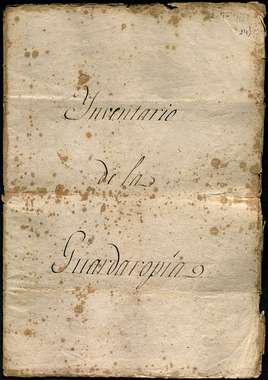 Ynventario
de la
Guardaropía